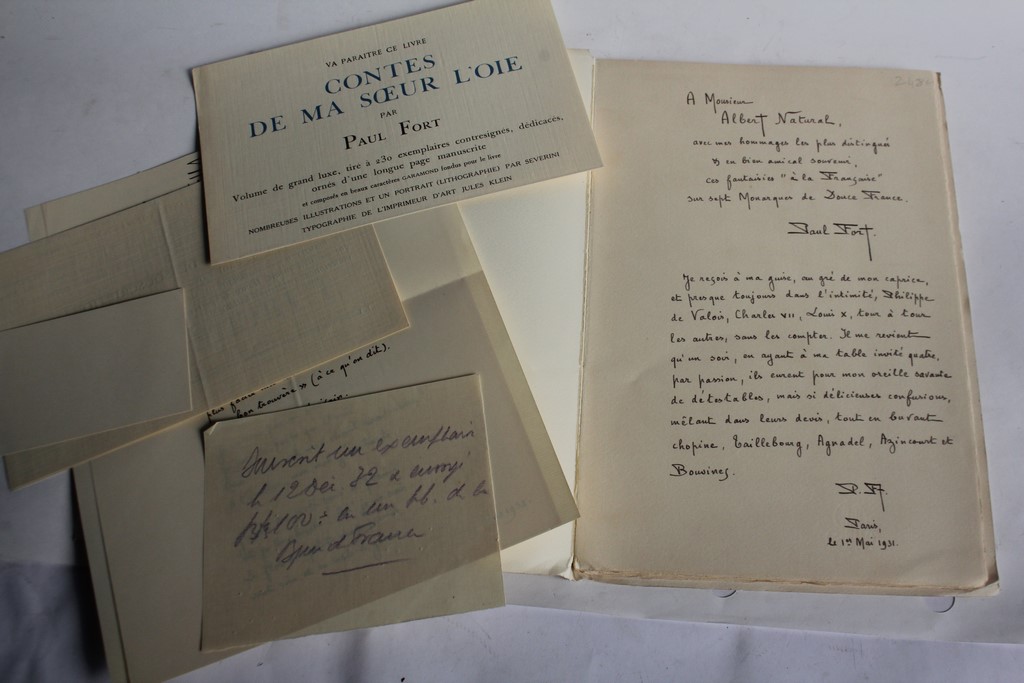 VA PARAITRE CE LIVRE
CONTES
DE MA SŒUR L'OIE
PAR
PAUL FORT
Volume de grand luxe, tiré à 230 exemplaires contresignés, dédicacés,
ornés d'une longue page manuscrite
et composés en beaux caractères GARAMOND fondus pour le livre
NOMBREUSES ILLUSTRATIONS ET UN PORTRAIT (LITHOGRAPHIE) PAR SEVERINI
TYPOGRAPHIE DE L'IMPRIMEUR D'ART JULES KLEIN
plus
bon trouvère » (à ce qu'on dit).
Souscrit un exemplaire
le 12 Déc 32 &
100 en un
A Monsieur
Albert Natural,
avec mes hommages les plus distingués
& en bien amical souvenir,
ces fantaisies "à la Française"
sur sept Monarques de Douce France.
Paul Fort.
Je reçois à ma guise, au gré de mon caprice,
et presque toujours dans l'intimité, Philippe
de Valois, Charles VII, Louis X, tour à tour
les autres, sans les compter. Il me revient
qu'un soir, en ayant à ma table invité quatre,
par passion, ils eurent pour mon oreille savante
de détestables, mais si délicieuses confusions,
mêlant dans leurs devis, tout en buvant
chopine, Taillebourg, Agnadel, Azincourt et
Bouvines.
P. F.
Paris,
le 1er Mai 1931.